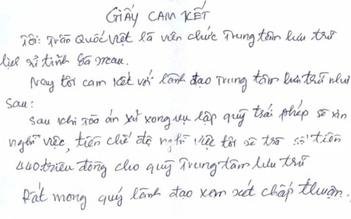 GIẤY CAM KẾT
Tôi: Trần Quốc Việt là viên chức Trung tâm lưu trữ
lịch sử tỉnh Cà Mau.
Nay tôi cam kết với lãnh đạo Trung tâm lưu trữ như
sau:
sau khi tòa án xử xong vụ lập quỹ trái phép sẽ xin
nghỉ việc, tiền chế độ nghỉ việc tôi sẽ trả số tiền
440 triệu đồng cho quỹ Trung tâm lưu trữ
Rất mong quý lãnh đạo xem xét chấp thuận.